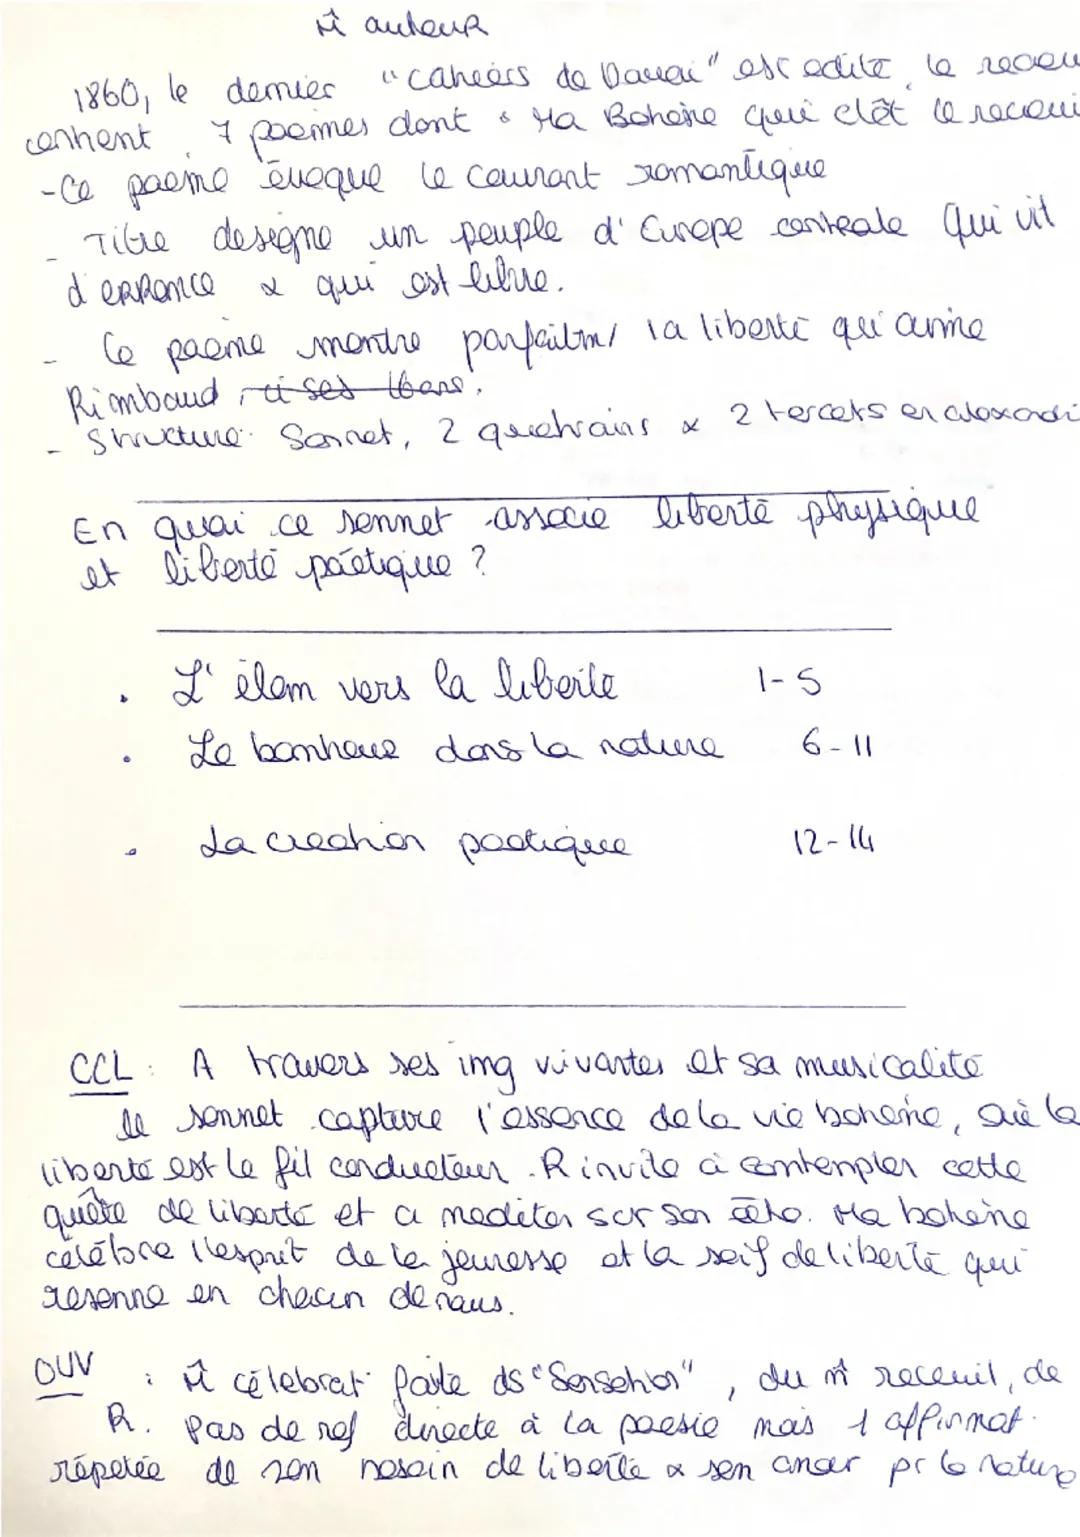 m̂ auteur
1860, le dernier "cahiers de Douai" est edité, le recueil
contient 7 poèmes dont " Ma Bohème qui clôt le recueil
- Ce poème évoque le courant romantique
- Titre désigne un peuple d'Europe centrale qui vit
d'errance & qui est libre.
- Ce poème montre parfaitm/ la liberté qui anime
Rimbaud
- Structure: Sonnet, 2 quatrains & 2 tercets en alexandri
En quoi ce sonnet associe liberté physique
et liberté poétique ?
• L'élan vers la liberté 1-5
• Le bonheur dans la nature 6-11
• La création poétique 12-14
CCL : A travers ses img vivantes et sa musicalité
le sonnet capture l'essence de la vie bohème, où la
liberté est le fil conducteur. R invite à contempler cette
quête de liberté et à méditer sur son écho. Ma bohème
célèbre l'esprit de la jeunesse et la soif de liberté qui
résonne en chacun de nous.
OUV : m̂ célébrat° faite ds "Sensation", du m̂ receuil, de
R. Pas de ref directe à la poésie mais 1 affirmat°
répétée de son besoin de liberté & son amour pr la nature